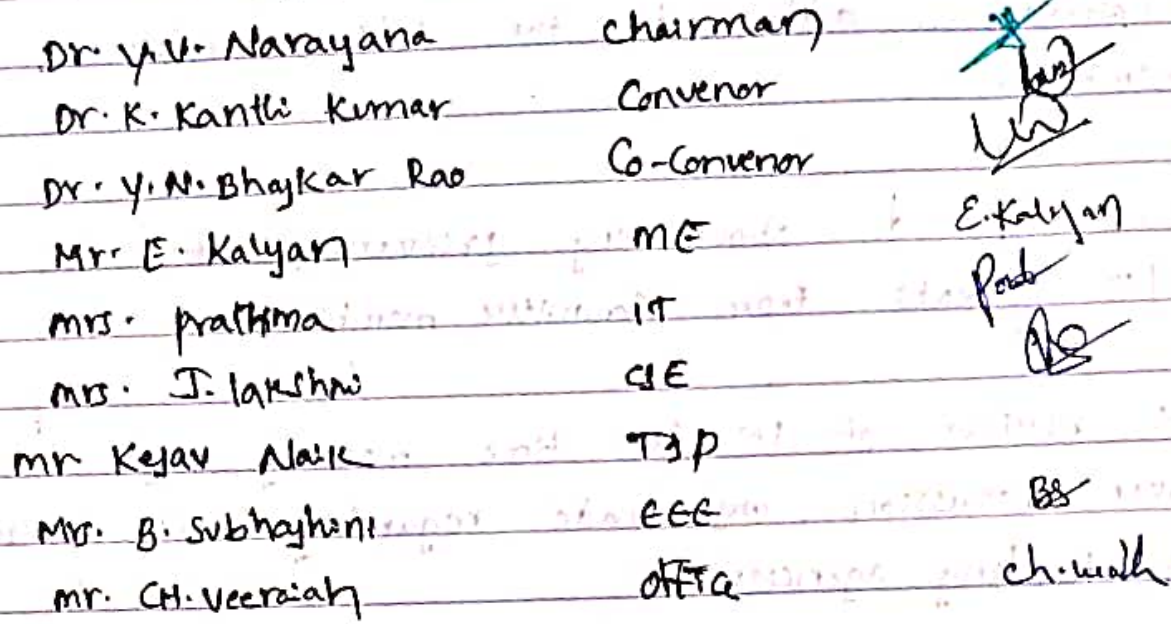 Dr. Y.V. Narayana Chairman
Dr. K. Kanthi Kumar Convenor
Dr. Y.N. Bhaskar Rao Co-Convenor
Mr. E. Kalyan ME E. Kalyan
Mrs. Prathima IT
Mrs. J. lakshmi CSE
Mr Kesav Naik
Mrs. B. Subhashini EEE BS
Mr. CH. Veeraiah Office